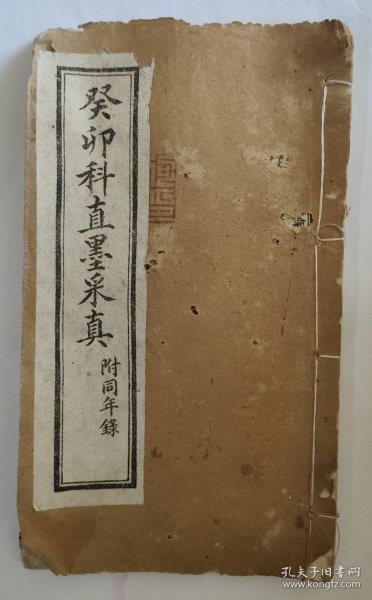 癸卯科直墨采真
附同年錄
孔夫子旧书网
www.kongfz.com